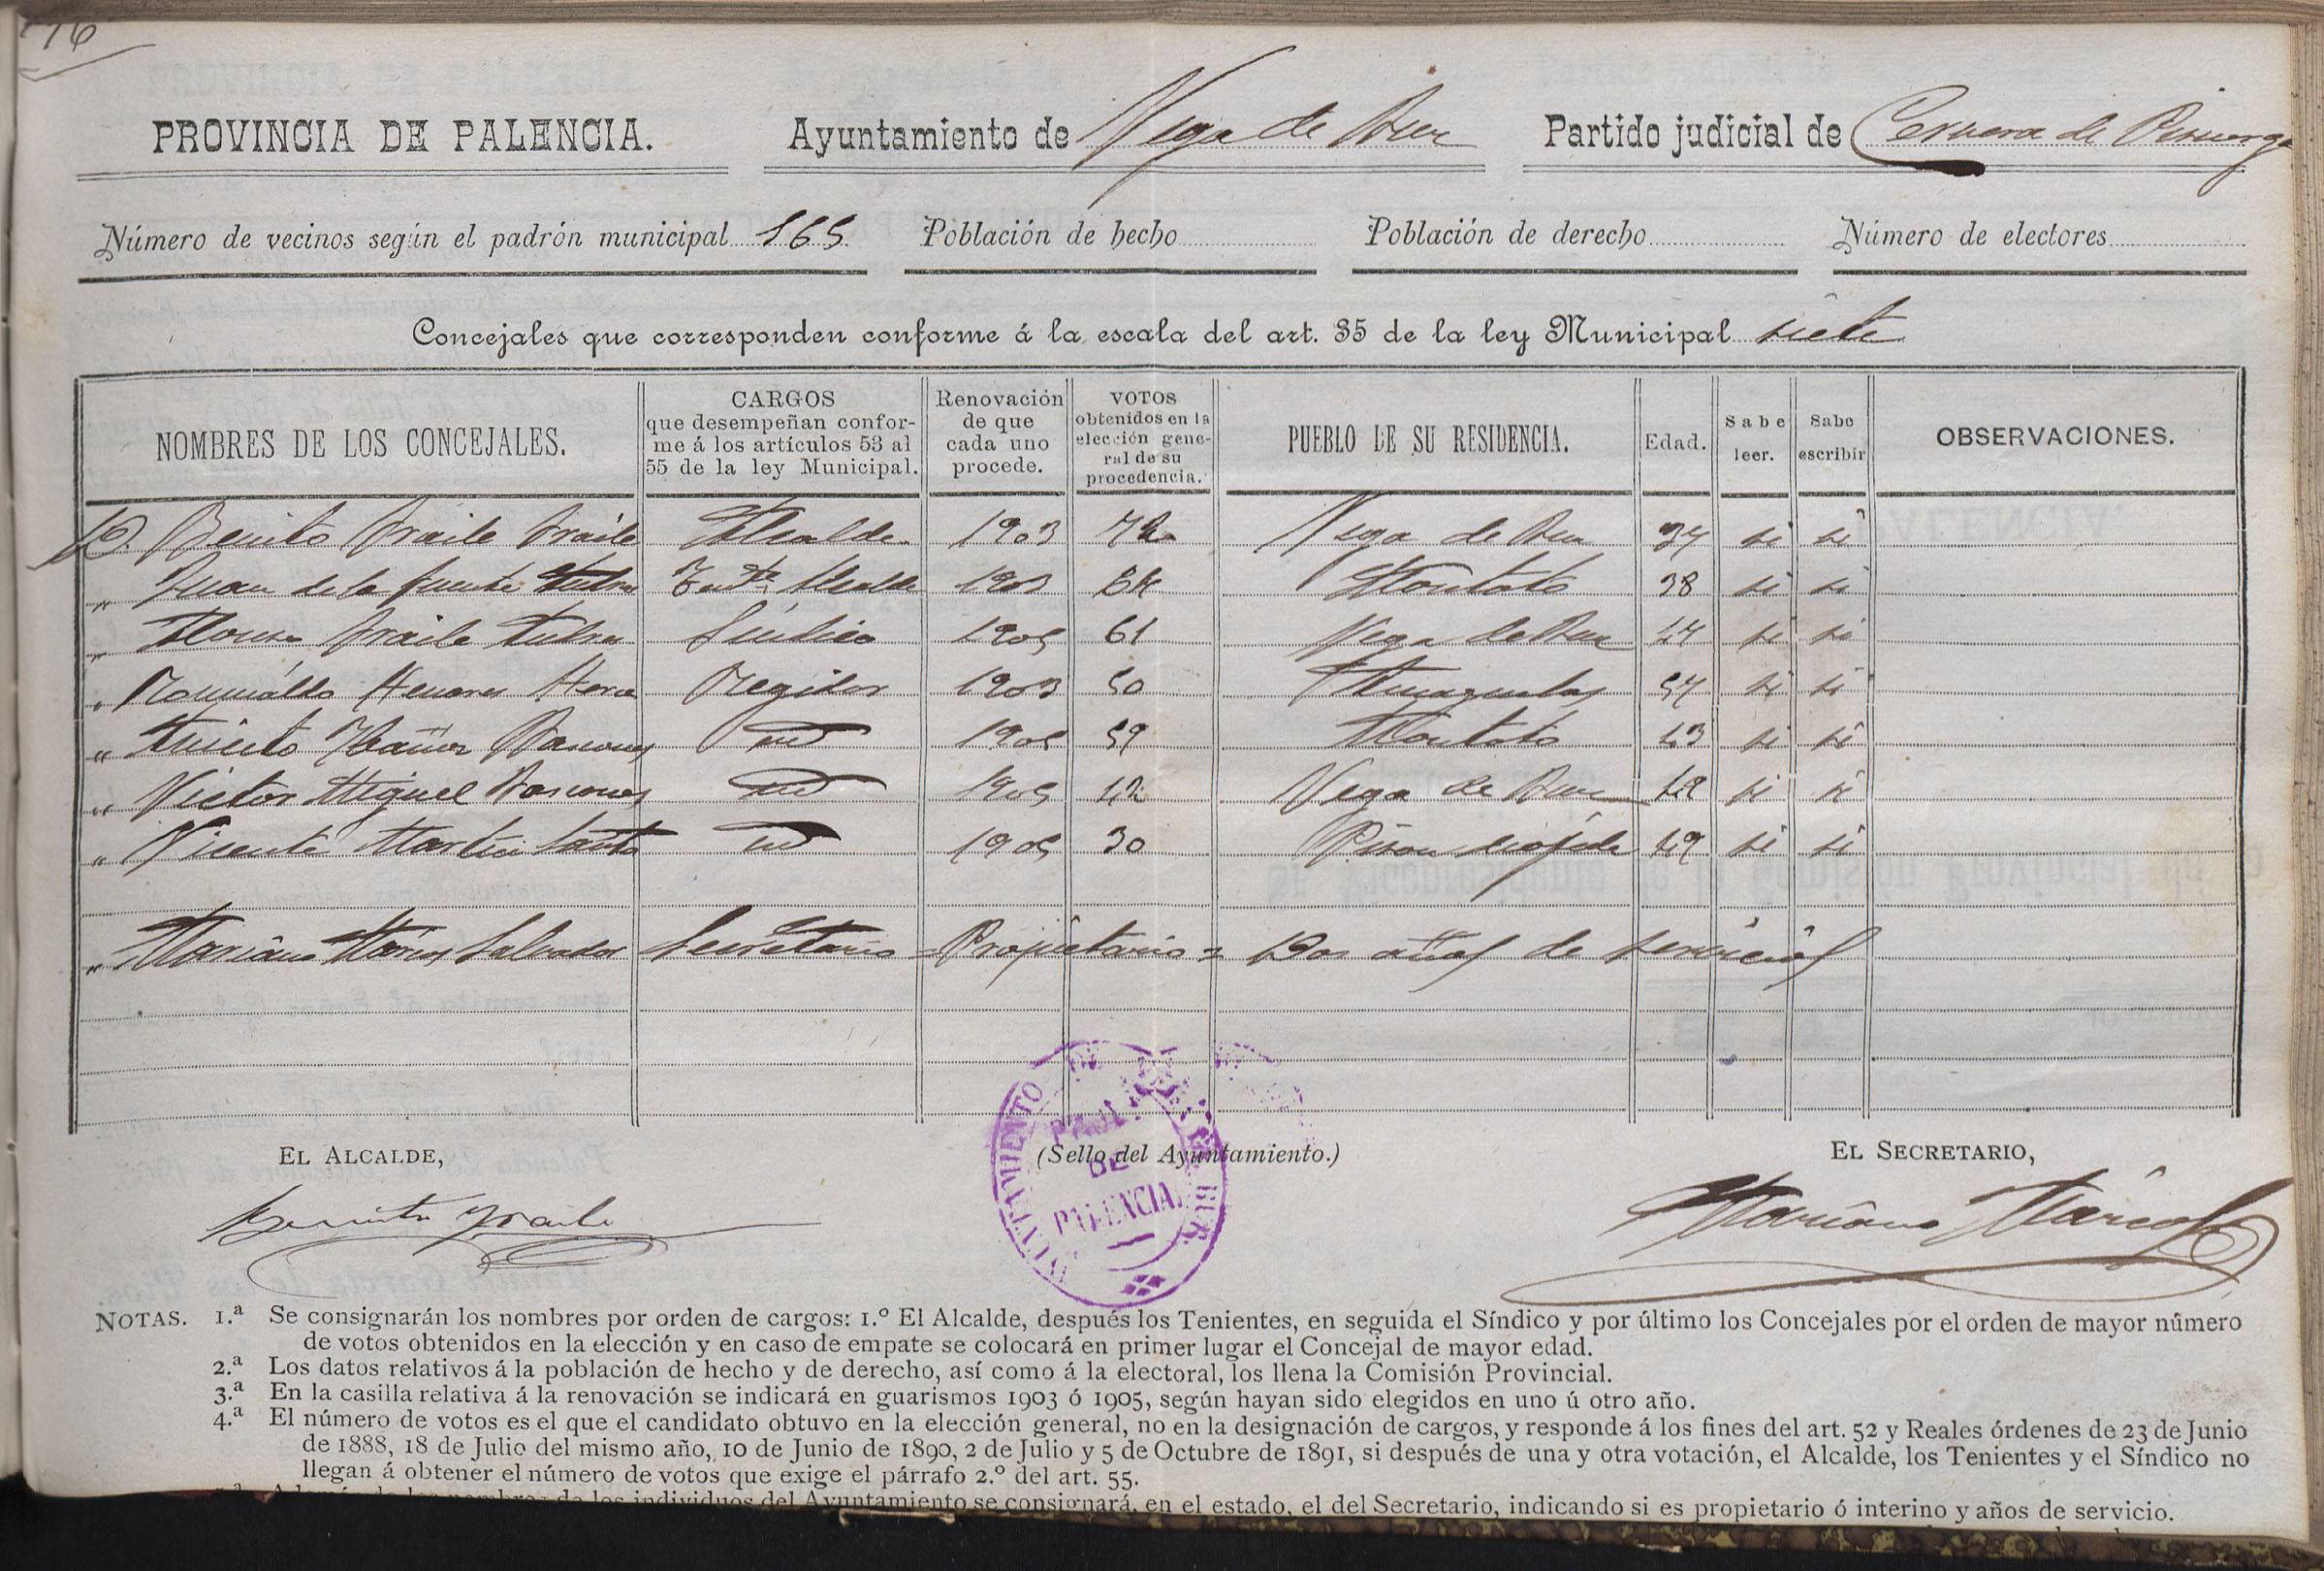 76
PROVINCIA DE PALENCIA. Ayuntamiento de Vega de Bur Partido judicial de Cervera de Pisuerga
Número de vecinos según el padrón municipal 165 Población de hecho Población de derecho Número de electores
Concejales que corresponden conforme á la escala del art. 35 de la ley Municipal siete
NOMBRES DE LOS CONCEJALES. CARGOS que desempeñan conforme á los artículos 53 al 55 de la ley Municipal. Renovación de que cada uno procede. VOTOS obtenidos en la elección general de su procedencia. PUEBLO DE SU RESIDENCIA. Edad. Sabe leer. Sabe escribir OBSERVACIONES.
D. Benito Fraile Fraile Alcalde 1903 Vega de Bur 34 si si
" Juan de la Fuente Alcalde 1903 Montoto 38 si si
" Fraile Síndico 1905 61 Vega de Bur 44 si si
" Henares Regidor 1903 50 54 si si
" Ibañez id 1905 39 Montoto 43 si si
" Victor Miguel id 1905 42 Vega de Bur 48 si si
" Vicente Martin Santos id 1905 30 Pison de Ojeda 49 si si
" Mariano Marcos Salvador Secretario = Propietario = Dos años de servicios
EL ALCALDE, (Sello del Ayuntamiento.) EL SECRETARIO,
AYUNTAMIENTO DE BUR
DE
PALENCIA
Benito Fraile Mariano Marcos
NOTAS. 1.ª Se consignarán los nombres por orden de cargos: 1.º El Alcalde, después los Tenientes, en seguida el Síndico y por último los Concejales por el orden de mayor número
de votos obtenidos en la elección y en caso de empate se colocará en primer lugar el Concejal de mayor edad.
2.ª Los datos relativos á la población de hecho y de derecho, así como á la electoral, los llena la Comisión Provincial.
3.ª En la casilla relativa á la renovación se indicará en guarismos 1903 ó 1905, según hayan sido elegidos en uno ú otro año.
4.ª El número de votos es el que el candidato obtuvo en la elección general, no en la designación de cargos, y responde á los fines del art. 52 y Reales órdenes de 23 de Junio
de 1888, 18 de Julio del mismo año, 10 de Junio de 1890, 2 de Julio y 5 de Octubre de 1891, si después de una y otra votación, el Alcalde, los Tenientes y el Síndico no
llegan á obtener el número de votos que exige el párrafo 2.º del art. 55.
de los individuos del Ayuntamiento se consignará, en el estado, el del Secretario, indicando si es propietario ó interino y años de servicio.